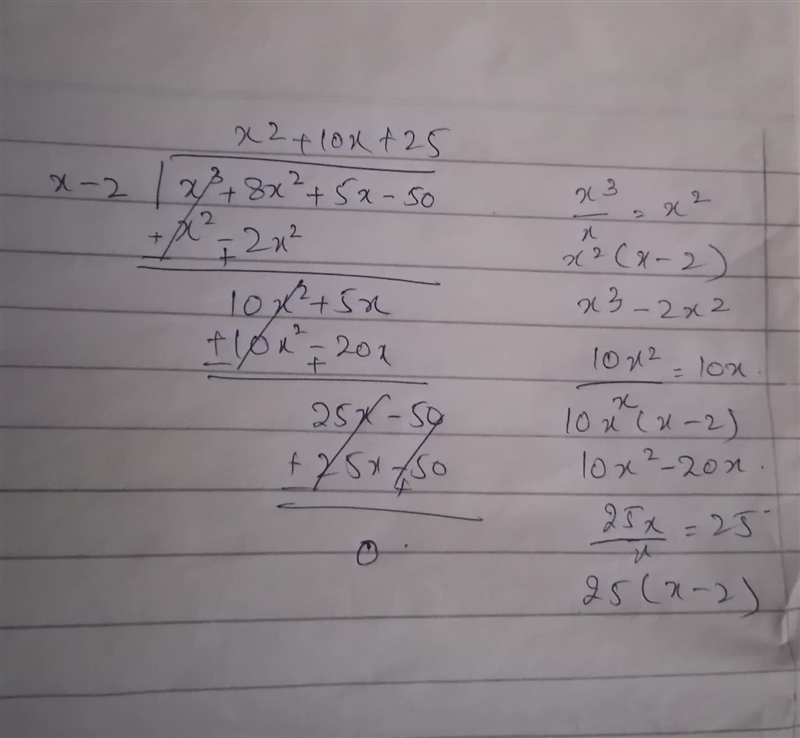 x2+10x+25
x-2 | x³+8x²+5x-50
+x²-2x²
- +
10x²+5x
+10x²-20x
- +
25x-50
+25x-50
- +
0
x³/x = x²
x²(x-2)
x3-2x2
10x²/x = 10x.
10x(x-2)
10x²-20x.
25x/x = 25
25(x-2)